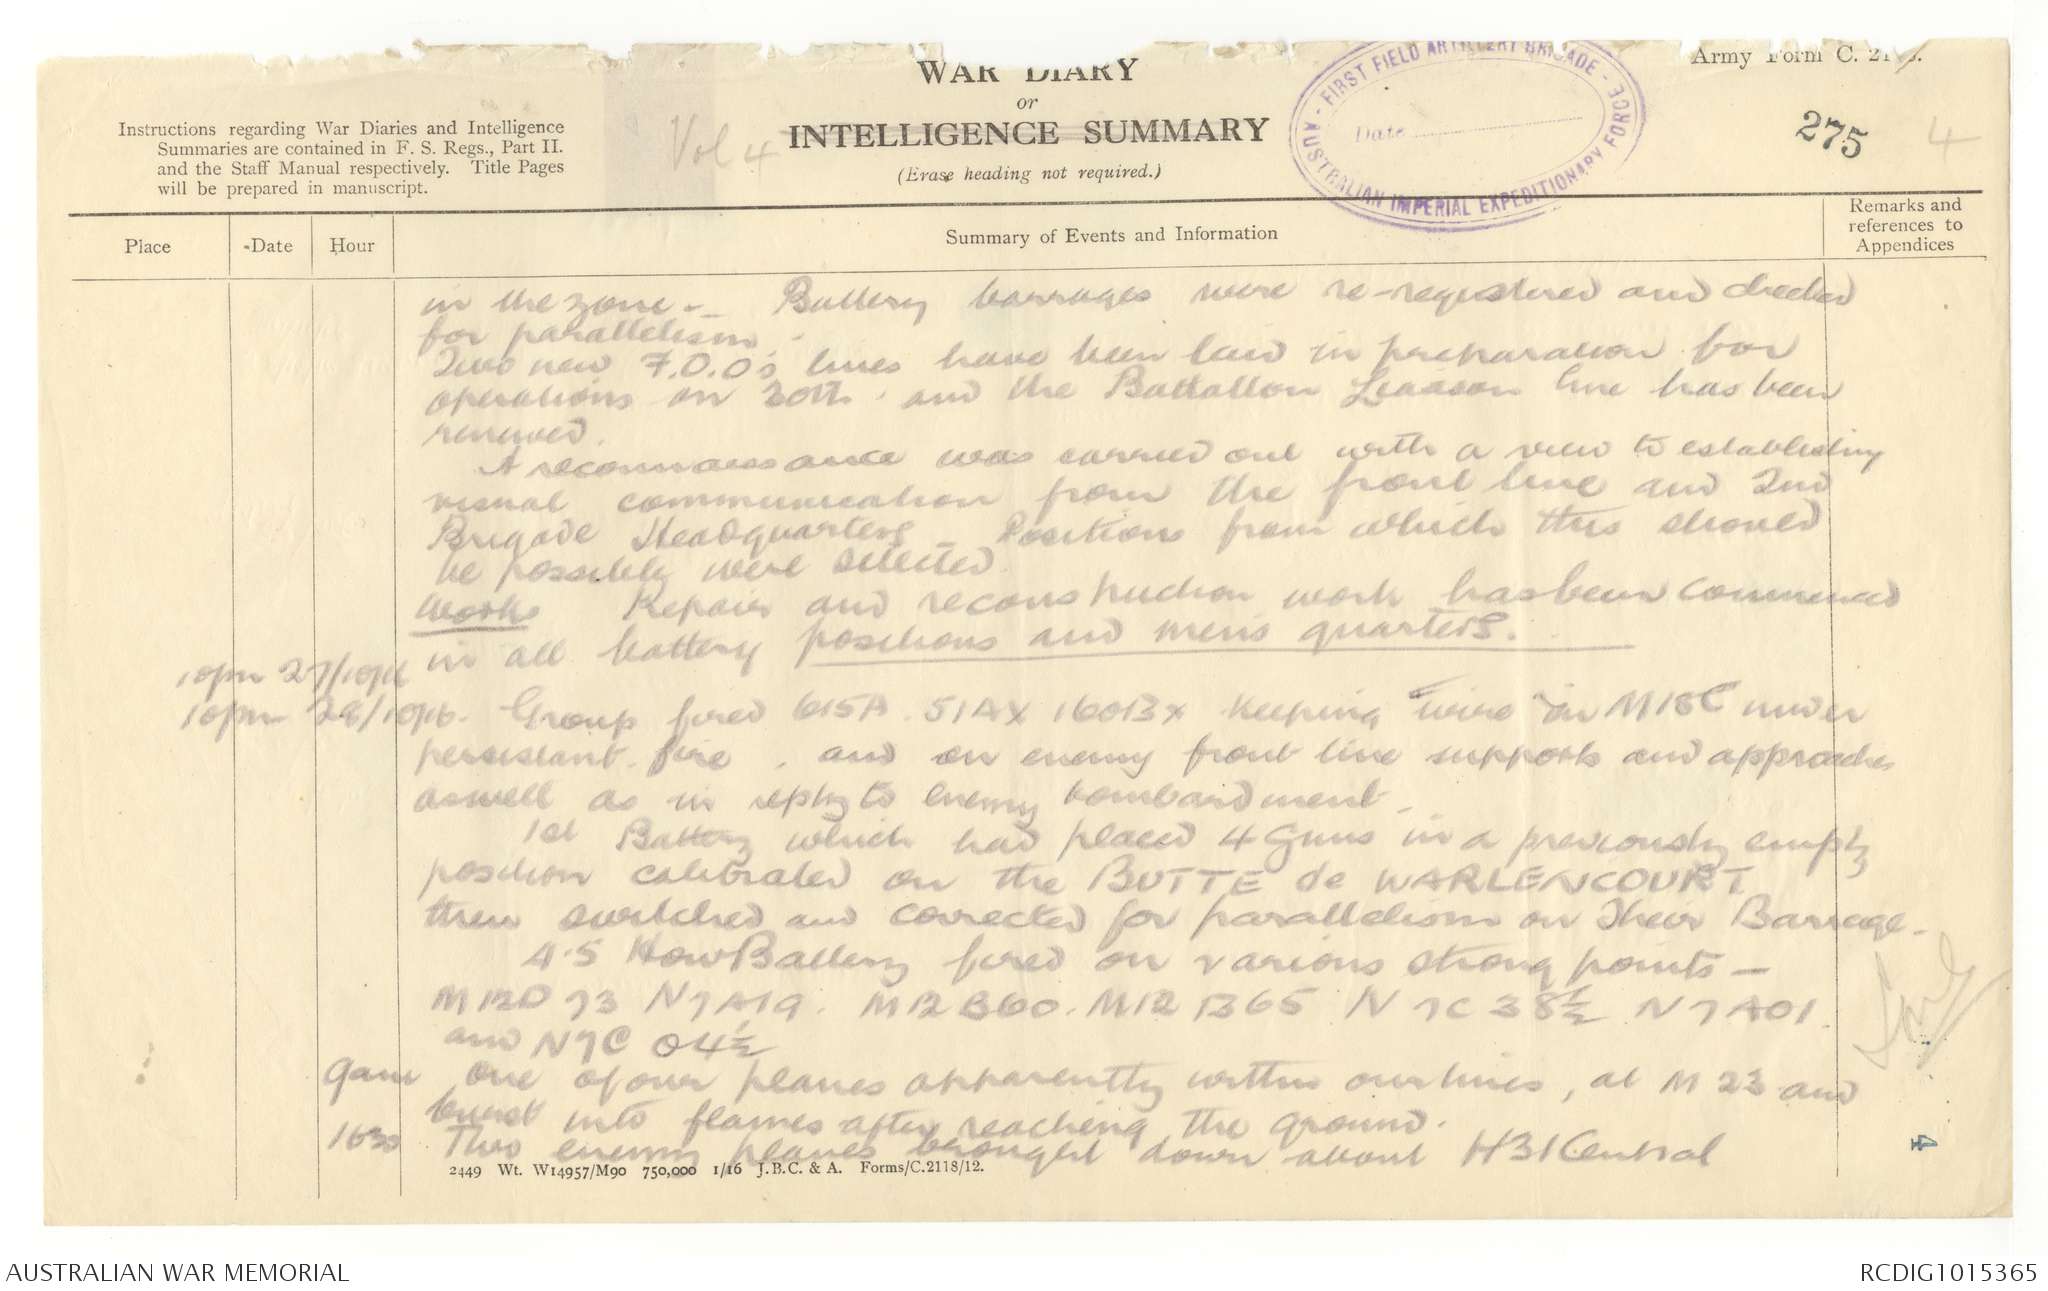 WAR DIARY
or
INTELLIGENCE SUMMARY
(Erase heading not required.)
Army Form C. 2118.
Instructions regarding War Diaries and Intelligence
Summaries are contained in F. S. Regs., Part II.
and the Staff Manual respectively. Title Pages
will be prepared in manuscript.
Vol 4
FIRST FIELD ARTILLERY BRIGADE - AUSTRALIAN IMPERIAL EXPEDITIONARY FORCE -
Date
275
4
Place
Date
Hour
Summary of Events and Information
Remarks and
references to
Appendices
in the zone - Battery barrages were re-registered and checked
for parallelism.
Two new F.O.O's lines have been laid in preparation for
operations on 30th and the Battalion Liaason line has been
renewed.
A reconnaissance was carried out with a view to establishing
visual communication from the front line and 2nd
Brigade Headquarters - Positions from which this should
be possible were selected.
Works Repair and reconstruction work has been commenced
in all battery positions and mens quarters.
10pm 27/10/16
10pm 28/10/16. Group fired 615A. 51AX 160BX keeping wire in M18C under
persistant fire, and on enemy front line supports and approaches
aswell as in reply to Enemy bombardment -
1st Battery which had placed 4 guns in a previously empty
position calibrated on the BUTTE de WARLENCOURT
then switched and corrected for parallelism on their Barrage -
4.5 How Battery fired on various strong points -
M12D 73 N7A19. M12B60. M12B65 N7C 38½ N7A01.
and N7C 04½
9am One of our planes apparently within our lines, at M23 and
burst into flames after reaching the ground.
1630 Two enemy planes brought down about H31Central
2449 Wt. W14957/M90 750,000 1/16 J.B.C. & A. Forms/C.2118/12.
4
AUSTRALIAN WAR MEMORIAL
RCDIG1015365